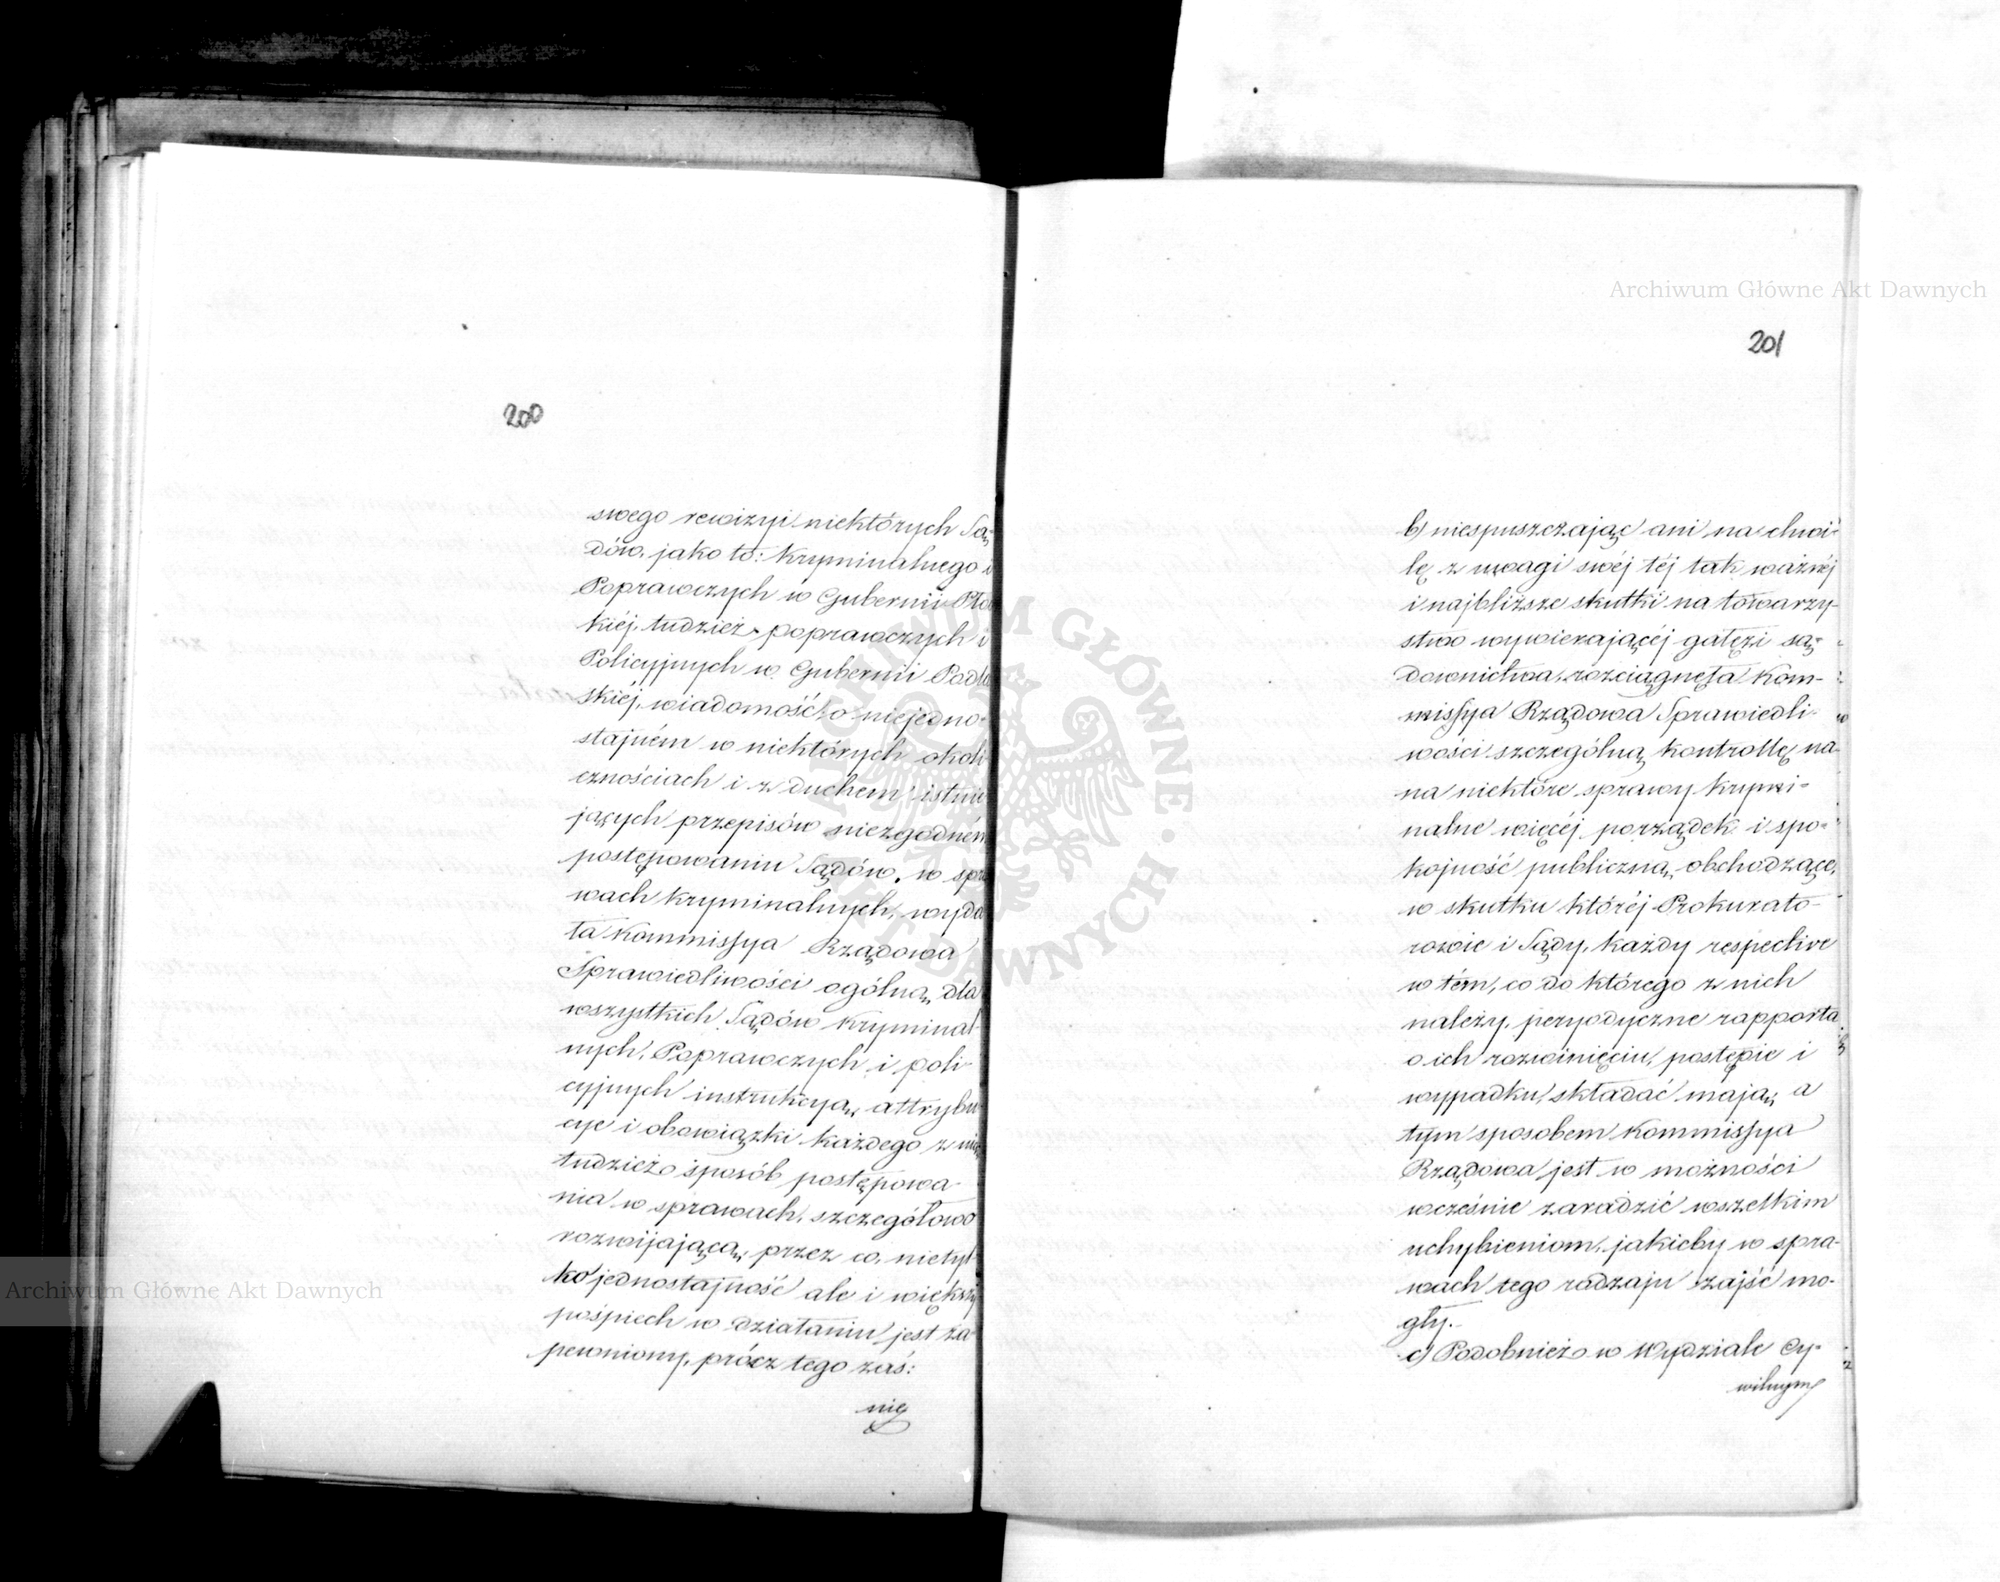 200
swego rewizyi niektórych Są-
dów, jako to: Kryminalnego i
Poprawczych w Gubernii Płoc
kiéj, tudzież poprawczych i
Policyjnych w Gubernii Podla
skiéj, wiadomość o niejedno-
stajném w niektórych okoli
cznościach i z duchem istnie
jących przepisów niezgodném
postępowaniu Sądów, w spra
wach kryminalnych, wyda
ła Kommissya Rządowa
Sprawiedliwości ogólną, dla
wszystkich Sądów Kryminal-
nych, Poprawczych i poli-
cyjnych instrukcyą, attrybu-
cye i obowiązki każdego z nich
tudzież sposób postępowa-
nia w sprawach, szczegółowo
rozwijającą, przez co, nietyl
ko jednostajność ale i większy
pośpiech w działaniu jest za
pewniony, prócz tego zaś:
nie
201
b) niespuszczając ani na chwi-
lę z uwagi swéj téj tak ważnéj
i najbliższe skutki na towarzy-
stwo wywierającéj gałęzi są-
downictwa, rozciągnęła Kom-
missya Rządowa Sprawiedli-
wości szczególną kontrollę na-
na niektóre sprawy krymi-
nalne więcéj porządek i spo-
kojność publiczną obchodzące,
w skutku któréj Prokurato-
rowie i Sądy, każdy respective
w tém, co do którego z nich
należy, peryodyczne rapporta
o ich rozwinięciu, postępie i
wypadku, składać mają, a
tym sposobem Kommissya
Rządowa jest w możności
wcześnie zaradzić wszelkim
uchybieniom, jakieby w spra-
wach tego rodzaju zajść mo-
gły.
c) Podobnież w Wydziale Cy-
wilnym
Archiwum Główne Akt Dawnych
Archiwum Główne Akt Dawnych
ARCHIWUM GŁÓWNE AKT DAWNYCH